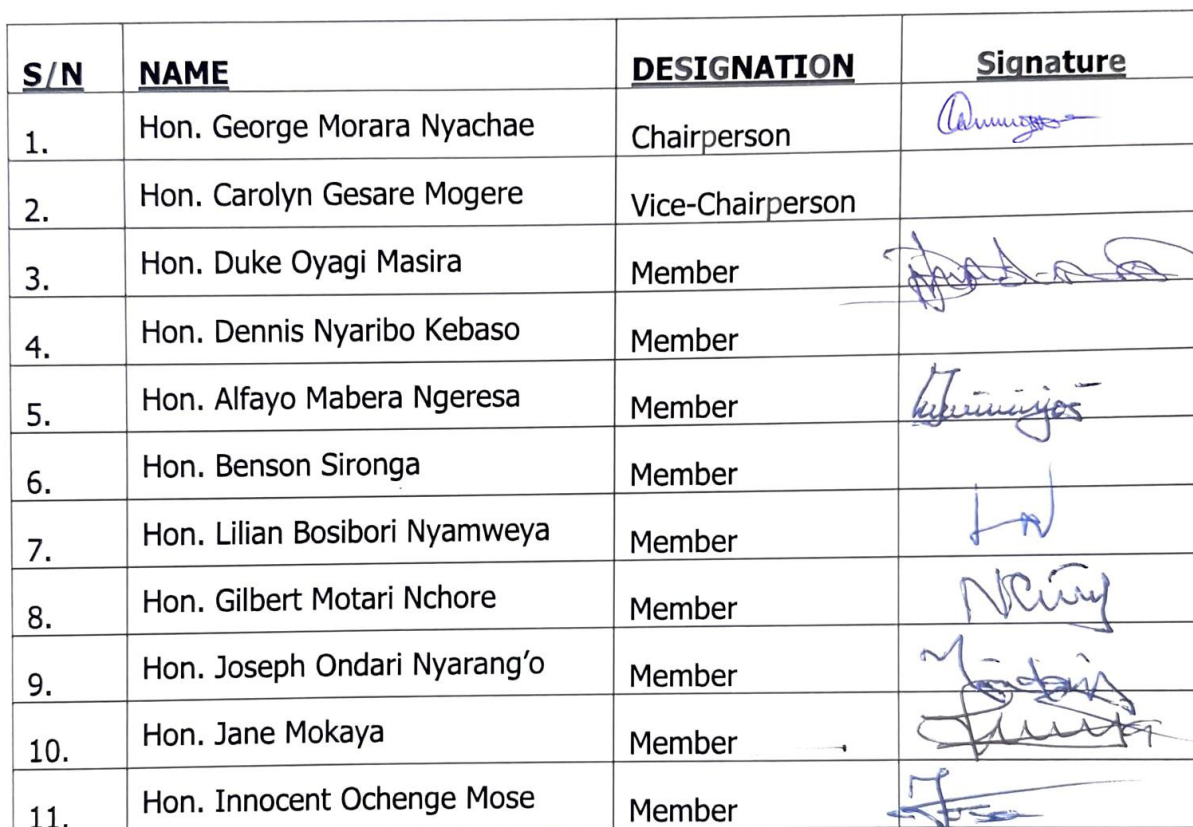 S/N NAME DESIGNATION Signature
1. Hon. George Morara Nyachae Chairperson
2. Hon. Carolyn Gesare Mogere Vice-Chairperson
3. Hon. Duke Oyagi Masira Member
4. Hon. Dennis Nyaribo Kebaso Member
5. Hon. Alfayo Mabera Ngeresa Member
6. Hon. Benson Sironga Member
7. Hon. Lilian Bosibori Nyamweya Member
8. Hon. Gilbert Motari Nchore Member
9. Hon. Joseph Ondari Nyarang’o Member
10. Hon. Jane Mokaya Member
11. Hon. Innocent Ochenge Mose Member